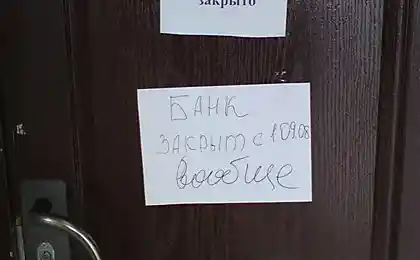 закрыто
БАНК
ЗАКРЫТ С 1.09.08
вообще